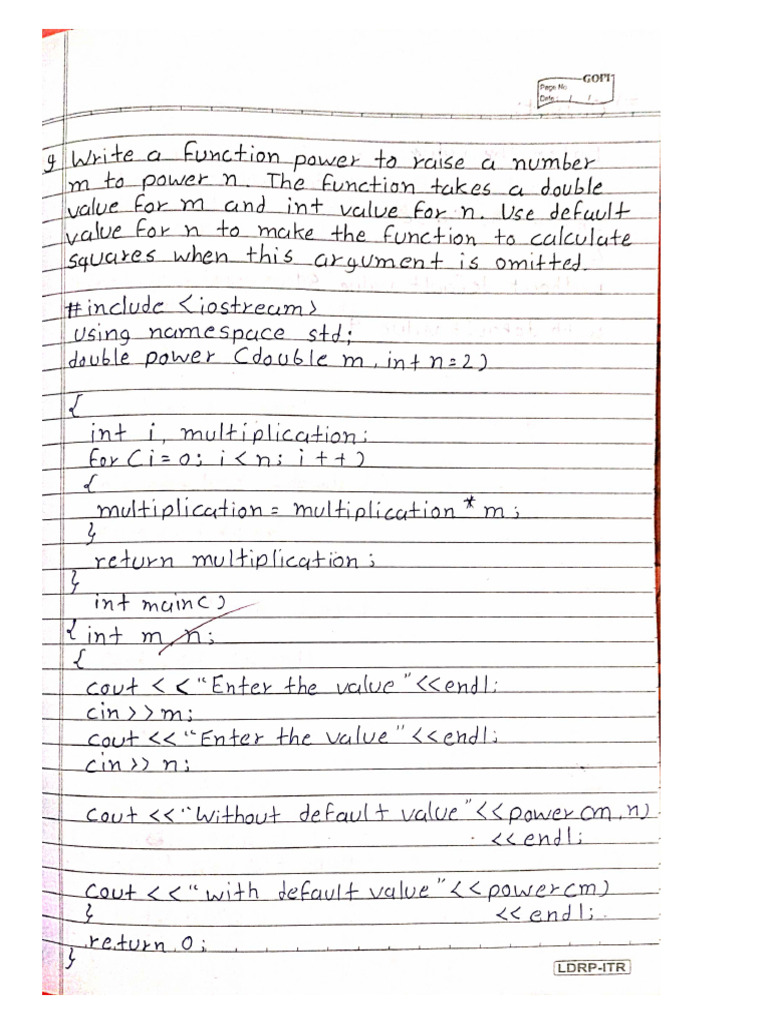 GOPI
Page No.
Date: / /
9 Write a function power to raise a number
m to power n. The function takes a double
value for m and int value for n. Use default
value for n to make the function to calculate
squares when this argument is omitted.
#include <iostream>
using namespace std;
double power (double m, int n=2)
{
int i, multiplication;
for (i=0; i<n; i++)
{
multiplication = multiplication * m;
}
return multiplication;
}
int main()
{ int m, n;
{
cout << "Enter the value" <<endl;
cin>>m;
cout << "Enter the value" <<endl;
cin>> n;
cout << "Without default value" <<power(m,n)
<<endl;
cout << "with default value" <<power(m)
} <<endl;
return 0;
}
LDRP-ITR